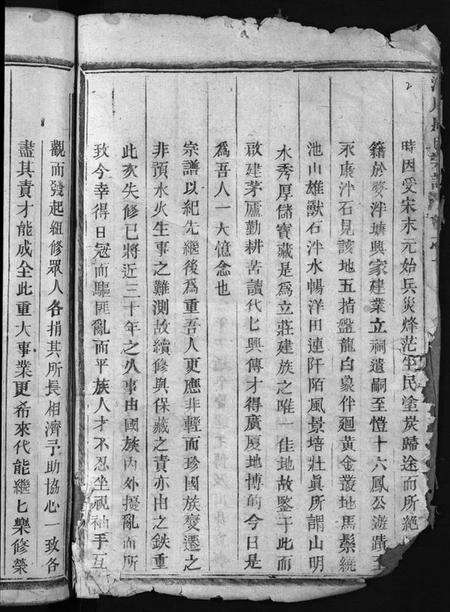 時因受宋末元始兵災烽茫生民塗炭歸途而所絕
籍於麥泮塘興家建業立祠遺嗣至愷十六鳳公遊
永康泮石見該地五指盤龍白象伴廻黃金叢地馬鬃統
池山雄獸石泮水暢洋田連阡陌風景培壯真所謂山明
水秀厚儲寶藏是為立莊建族之唯一佳地故鑒于此而
啟建茅廬勤耕苦讀代匕興傳才得廣厦地博的今日是
爲吾人一大憶念也
宗譜以紀先繼後為重吾人更應非輕而珍國族變遷之
非預水火生事之難測故續修與保藏之責亦由之鈌重
此亥失修已將近三十年之久事由國族内外擾亂而所
致今幸得日冦而驅匪亂而平族人才不忍坐視袖手互
觀而發起紐修眾人各捐其所長相濟予助協心一致各
盡其責才能成全此重大事業更希來代能繼匕樂修榮